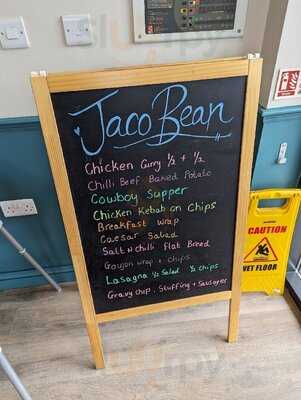 JACO BEAN
Jaco Bean
Chicken Curry ½ + ½
Chilli Beef Baked Potato
Cowboy Supper
Chicken Kebab on Chips
Breakfast wrap
Caesar Salad
Salt n chilli Flat Bread
Goujon wrap + chips
Lasagna ½ Salad ½ chips
Gravy chip, Stuffing + Sausages
CAUTION
WET FLOOR